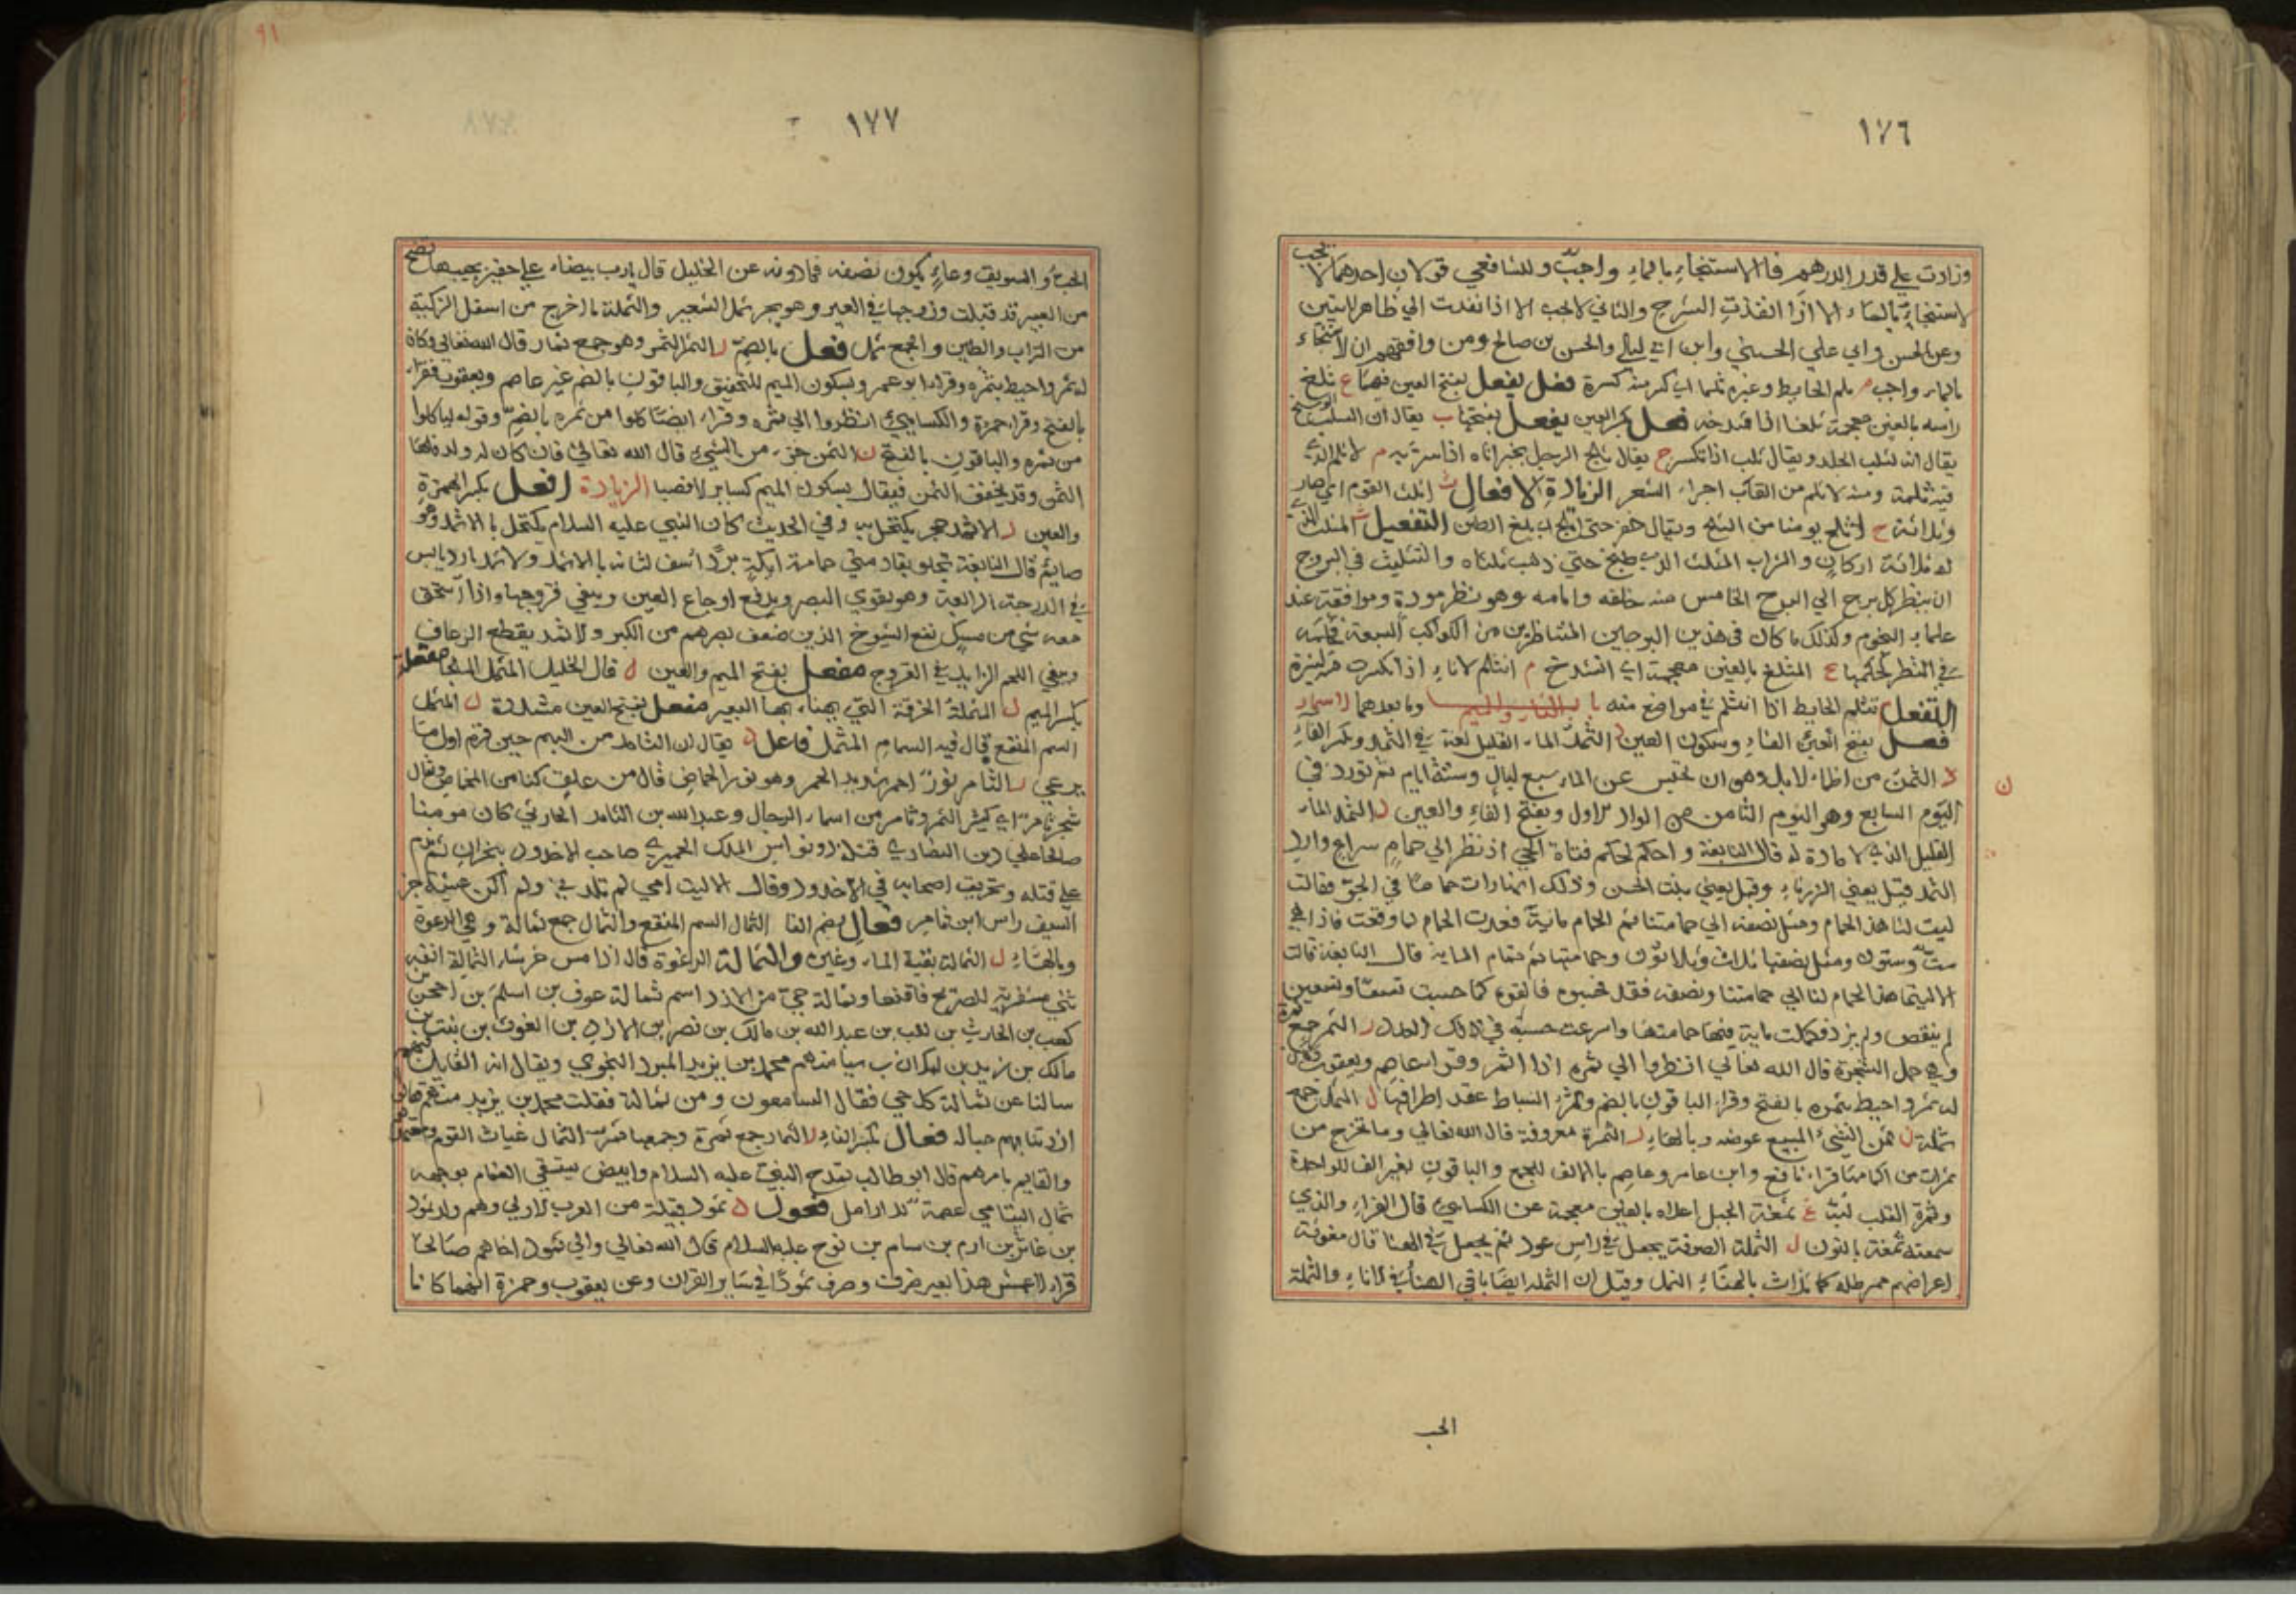 ١٧٦
وزادت علي قدر الدرهم فالاستنجاء بالماء واجب وللشافعي قولان احدهما لا يجب
الاستنجاء بالماء الا اذا انفذت الشرج والثاني لا يجب الا اذا نفدت الي ظاهر الاليتين
وعن الحسن وابي علي وابن ابي ليلي والحسن بن صالح ومن وافقهم ان الاستنجاء
بالماء واجب م ثلم الحايط وغيره ثلما اي كسر منه كسرة فعل يفعل بفتح العين فيهما غ ثلغ
راسه بالغين معجمة ثلغا اذا شدخه فعل بكسر العين يفعل بفتحها ب يقال ان الثلب الوسخ
يقال انه لثلب الجلد ويقال ثلب اذا تكسر ج يقال ثلج الرجل بخبر اتاه اذا سر به م الاثلم الذي
فيه ثلمة ومنه الاثلم من القاب اجزاء الشعر الزيادة الافعال ث اثلث القوم اي صاروا
ثلاثة ج اثلج يومنا من الثلج ويقال حفر حتي اثلج اي بلغ الطين التفعيل ث المثلث الذي
له ثلاثة اركان والشراب المثلث الذي طبخ حتي ذهب ثلثاه والتثليث في البروج
ان ينظر كل برج الي البرج الخامس من خلفه وامامه وهو نظر مودة وموافقة عند
علماء النجوم وكذلك ما كان في هذين البرجين المتناظرين من الكواكب السبعة
في النظر كحكمها غ المثلغ بالغين معجمة اي انشدخ م انثلم الاناء اذا انكسرت
التفعل تثلم الحايط اذا انثلم في مواضع منه باب الثاء والميم وما بعدهما الاسماء
فعل بفتح الفاء وسكون العين د الثمد الماء القليل لغة في الثمد وبكسر الفاء
ن الثمن من اظماء الابل وهو ان تحبس عن الماء سبع ليال وستة ايام ثم تورد في
ن
اليوم السابع وهو اليوم الثامن من الاول وبفتح الفاء والعين د الثمد الماء
القليل الذي لا مادة له قال النابغة واحكم كحكم فتاة الحي اذ نظر الي حمام سراع وارد
الثمد قيل يعني الزرقاء وقيل يعني بنت الخس وذلك انها رات حماما في الجو فقالت
ليت لنا هذا الحمام ومثل نصفه الي حمامتنا فتم الحمام ماية فعدت الحمام لما وقعت فاذا هي
ست وستون ومثل نصفها ثلاث وثلاثون وحمامتها تمام الماية قال النابغة قالت
الا ليتما هذا الحمام لنا الي حمامتنا ونصفه فقد فحسبوه فالفوه كما حسبت تسعا وتسعين
لم ينقص ولم يزد فكملت ماية فيها حمامتها واسرعت حسبة في ذلك العدد ر الثمر جمع ثمرة
وهي حمل الشجرة قال الله تعالي انظروا الي ثمره اذا اثمر وقرا عاصم ويعقوب
له ثمر واحيط بثمره بالفتح وقرا الباقون بالضم وثمر السياط عقد اطرافها ل الثمل جمع
ثملة ن ثمن الشيء المبيع عوضه وبالهاء ر الثمرة معروفة قال الله تعالي وما تخرج من
ثمرات من اكمامها قرا نافع وابن عامر وعاصم بالالف للجمع والباقون بغير الف للواحدة
وثمرة القلب غ ثمغة الجبل اعلاه بالغين معجمة عن الكسايي قال الفراء والذي
سمعته ثمغة بالنون ل الثملة الصوفة يجعل في راس عود ثم يجعل في الهنا قال
اعراضهم كما تلاث بالهناء الثمل وقيل ان الثملة ايضا باقي الهنا في الاناء والثملة
الحب
١٧٧
الحب والسويق وعاء يكون نصفه فما دونه عن الخليل قال
من العير قد قبلت وهو يجر ثمل الشعير والثملة ما اخرج من اسفل الركية
من التراب والطين والجمع ثمل فعل بالضم ر الثمر الثمر وهو جمع ثمار قال الله تعالي وكان
له ثمر واحيط بثمره وقرا ابو عمرو بسكون الميم للتخفيف والباقون بالضم غير عاصم ويعقوب فقرا
بالفتح وقرا حمزة والكسايي انظروا الي ثمره وقرا ايضا كلوا من ثمره بالضم وقوله لياكلوا
من ثمره والباقون بالفتح ن الثمن جزء من الشيء قال الله تعالي فان كان له ولد فلها
الثمن وقد يخفف الثمن فيقال بسكون الميم كساير الانصبا الزيادة افعل بكسر الهمزة
والعين د الاثمد حجر يكتحل به وفي الحديث كان النبي عليه السلام يكتحل بالاثمد وهو
صايم قال النابغة تجلو بقادمتي حمامة ايكة بردا اسف لثاته بالاثمد والاثمد بارد يابس
في الدرجة الرابعة وهو يقوي البصر ويدفع اوجاع العين وينقي قروحها واذا استحق
معه شي من مسك نفع الشيوخ الذين ضعف بصرهم من الكبر والاثمد يقطع الرعاف
وينقي اللحم الزايد في القروح مفعل بفتح الميم والعين ل قال الخليل المثمل الملجا مفعلة
بكسر الميم ل المثملة الخرقة التي يهنا بها البعير مفعل بفتح العين مشددة ل المثمل
السم المنقع قال فيه السمام المثمل فاعل د يقال ان الثامد من البهم حين قرم اول ما
يرعي ر الثامر نور احمر شديد الحمر وهو نور الحماض قال من علق كثامر الحماض ويقال
شجر ثامر اي كثير الثمر وثامر من اسماء الرجال وعبد الله بن الثامر الحارثي كان مومنا
صالحا علي دين النصاري قتله ذونواس الملك الحميري صاحب الاخدود بنجران ثم ندم
علي قتله وتحريق اصحابه في الاخدود وقال الا ليت امي لم تلدني ولم اكن عشية حز
السيف راس ابن ثامر فعال بضم الفا الثمال السم المنقع والثمال جمع ثمالة وهي الرغوة
وبالهاء ل الثمالة بقية الماء وغيره والثمالة الرغوة قال اذا مس خرشاء الثمالة انفه
ثني مشفريه للصريح فاقنعا وثمالة حي من الازد اسم ثمالة عوف بن اسلم بن احجن بن
كعب بن الحارث بن كعب بن عبد الله بن مالك بن نصر بن الازد بن الغوث بن نبت بن
مالك بن زيد بن كهلان بن سبا منهم محمد بن يزيد المبرد النحوي ويقال انه القايل
سالنا عن ثمالة كل حي فقال السامعون ومن ثمالة فقلت محمد بن يزيد منهم فقالوا
ازدتنا بهم جهاله فعال بكسر الفاء ر الثمار جمع ثمرة وجمعها ثمر ل الثمال غياث القوم
والقايم بامرهم قال ابو طالب يمدح النبي عليه السلام وابيض يستقي الغمام بوجهه
ثمال اليتامي عصمة للارامل فعول د ثمود قبيلة من العرب الاولي وهم ولد ثمود
بن عابر بن ارم بن سام بن نوح عليه السلام قال الله تعالي والي ثمود اخاهم صالحا
قرا الاعمش هذا بغير صرف وصرف ثمودا في ساير القران وعن يعقوب وحمزة انهما كانا